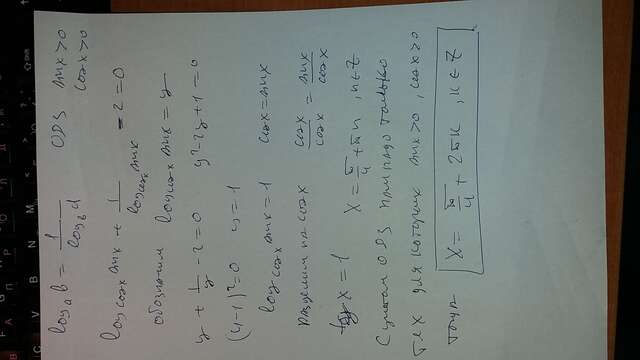 log_a b = 1/log_b a ODЗ sinx>0
cosx>0
log_cosx sinx + 1/log_cosx sinx - 2 = 0
обозначим log_cosx sinx = y
y + 1/y - 2 = 0 y²-2y+1=0
(y-1)²=0 y=1
log_cosx sinx = 1 cosx = sinx
разделим на cosx cosx/cosx = sinx/cosx
tg x = 1 x = π/4 + πn, n∈Z
С учетом ОДЗ только
тех для которых sinx>0, cosx>0
тогда x = π/4 + 2πk, k∈Z